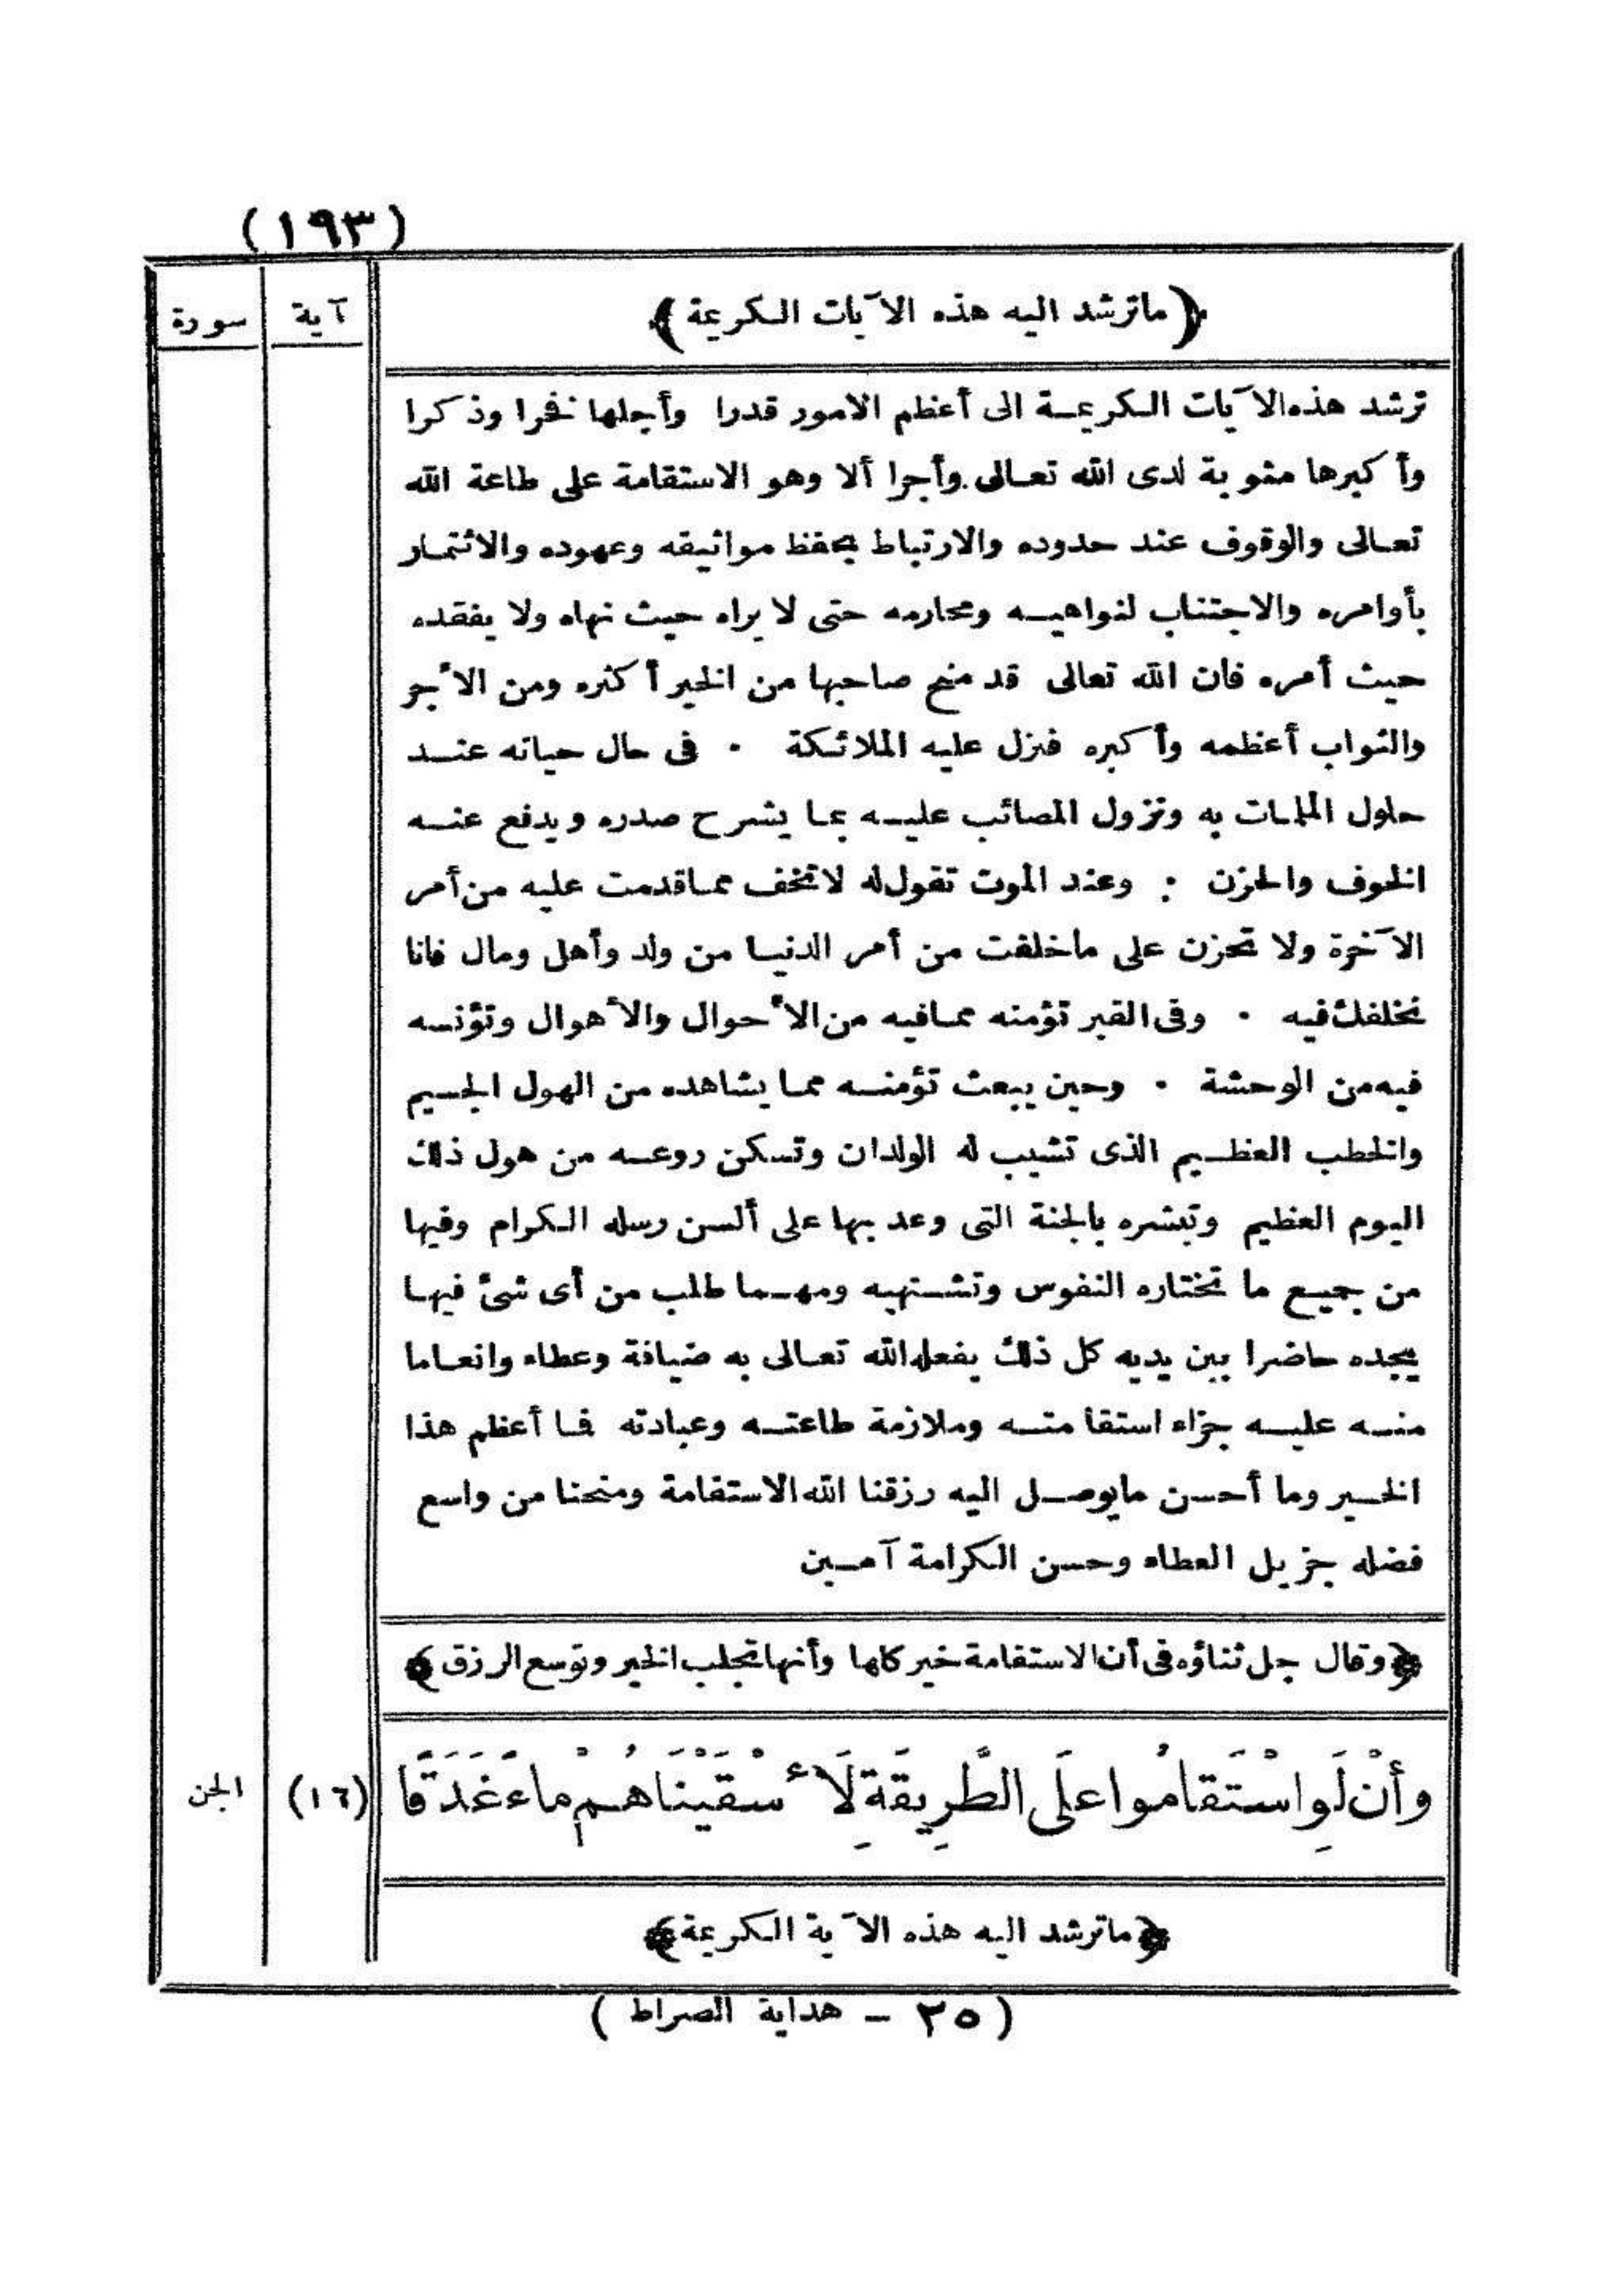 (١٩٣)
سورة
آية
﴿ماترشد اليه هذه الآيات الكريمة﴾
ترشد هذه الآيات الكريمة الى أعظم الامور قدرا وأجلها فخرا وذكرا
وأكبرها مثوبة لدى الله تعالى وأجرا ألا وهو الاستقامة على طاعة الله
تعالى والوقوف عند حدوده والارتباط بحفظ مواثيقه وعهوده والائتمار
بأوامره والاجتناب لنواهيه ومحارمه حتى لا يراه حيث نهاه ولا يفقده
حيث أمره فان الله تعالى قد منح صاحبها من الخير أكثره ومن الأجر
والثواب أعظمه وأكبره فنزل عليه الملائكة . فى حال حياته عند
حلول الملمات به ونزول المصائب عليه بما يشرح صدره ويدفع عنه
الخوف والحزن : وعند الموت تقول له لا تخف مما قدمت عليه من أمر
الآخرة ولا تحزن على ماخلفت من أمر الدنيا من ولد وأهل ومال فانا
نخلفك فيه . وفى القبر تؤمنه مما فيه من الأحوال والأهوال وتؤنسه
فيه من الوحشة . وحين يبعث تؤمنه مما يشاهده من الهول الجسيم
والخطب العظيم الذى تشيب له الولدان وتسكن روعه من هول ذلك
اليوم العظيم وتبشره بالجنة التى وعد بها على ألسن رسله الكرام وفيها
من جميع ما تختاره النفوس وتشتهيه ومهما طلب من أى شئ فيها
يجده حاضرا بين يديه كل ذلك يفعله الله تعالى به ضيافة وعطاء وانعاما
منه عليه جزاء استقامته وملازمة طاعته وعبادته فما أعظم هذا
الخير وما أحسن مايوصل اليه رزقنا الله الاستقامة ومنحنا من واسع
فضله جزيل العطاء وحسن الكرامة آمين
﴿وقال جل ثناؤه فى أن الاستقامة خير كلها وأنها تجلب الخير وتوسع الرزق﴾
وأنْ لَوِ اسْتَقَامُوا علَى الطَّرِيقَةِ لَأَسْقَيْنَاهُمْ ماءً غَدَقًا
(١٦)
الجن
﴿ماترشد اليه هذه الآية الكريمة﴾
(٢٥ – هداية الصراط)